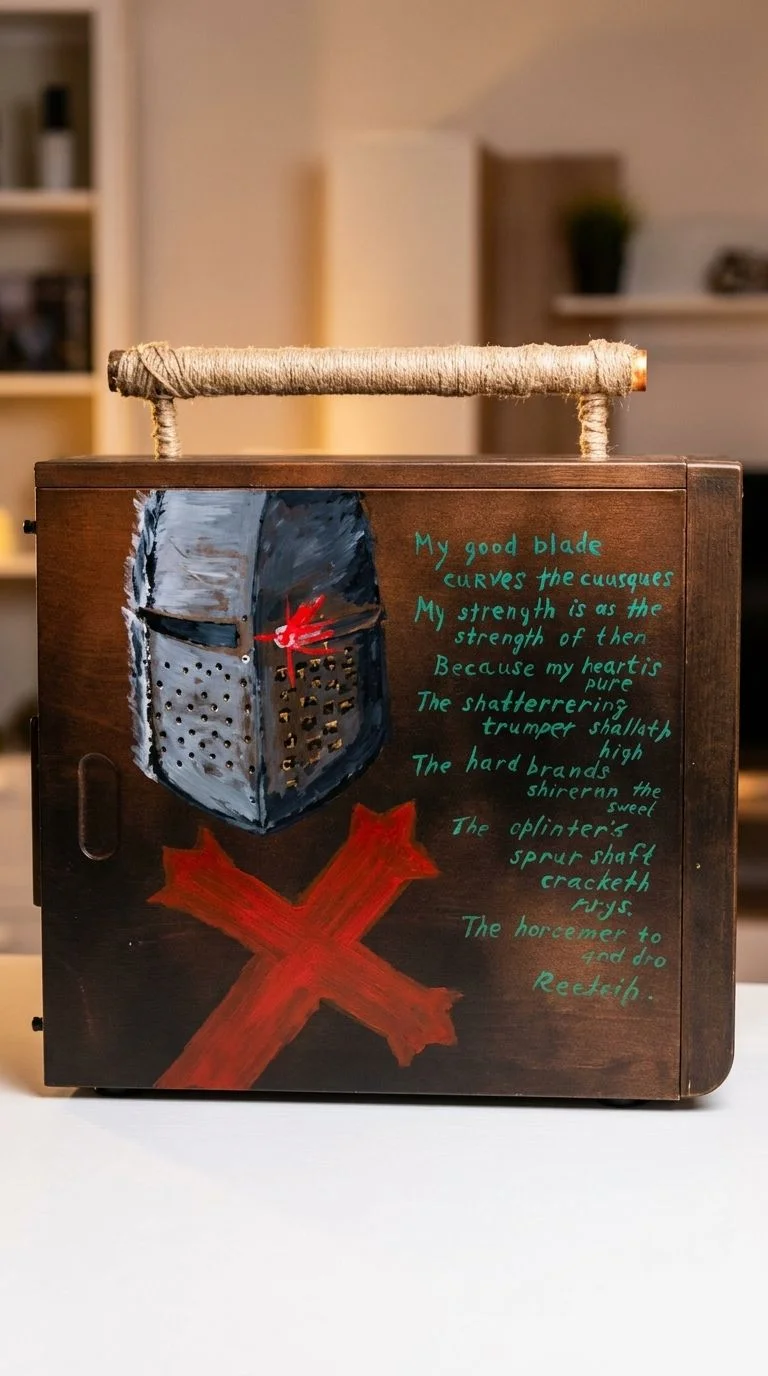 My good blade
curves the cuusques
My strength is as the
strength of then
Because my heart is
pure
The shatterrering
trumper shallath
high
The hard brands
shirernn the
sweet
The oplinter's
sprur shaft
cracketh
rrys.
The horcemer to
and dro